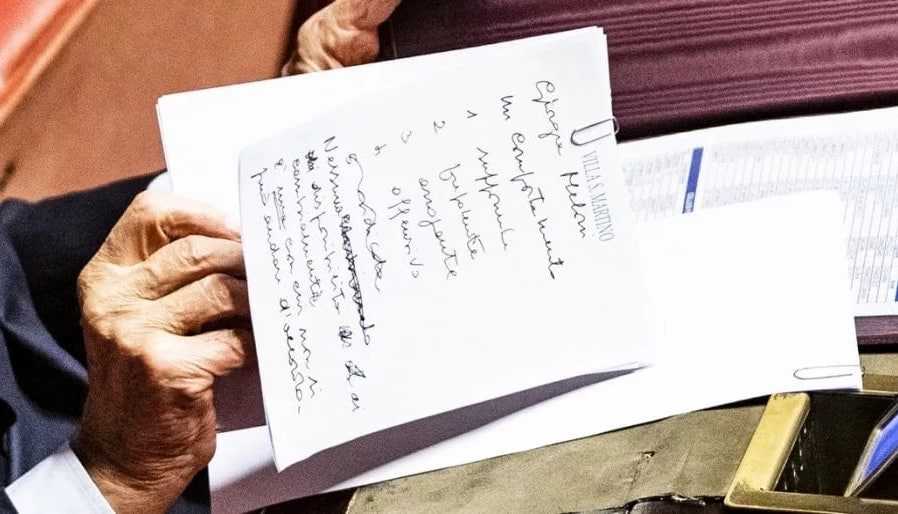 VILLA S. MARTINO
Giorgia Meloni
Un comportamento
1 supponente
2 prepotente
3 arrogante
4 offensivo
Nessuna
disponibilità ai
cambiamenti
È una con cui non si
può andar d'accordo.